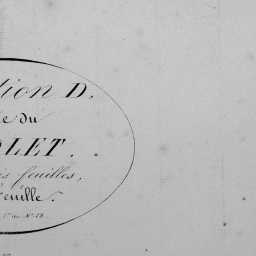 tion D.
e du
OLET.
is feuilles,
feuille.